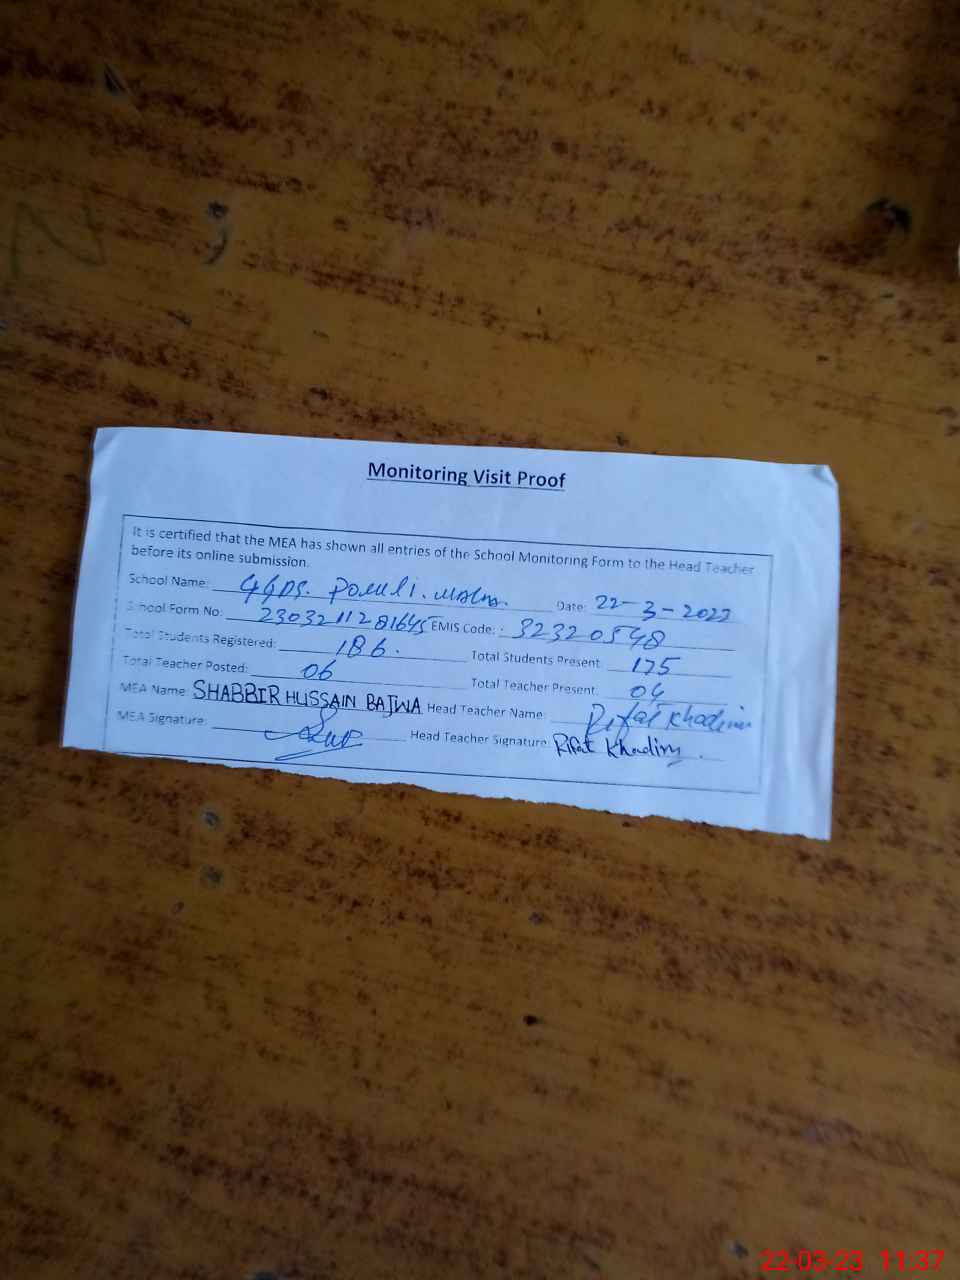 Monitoring Visit Proof
It is certified that the MEA has shown all entries of the School Monitoring Form to the Head Teacher
before its online submission.
School Name: Date: 22-3-2022
School Form No: 2303211281645 EMIS Code: 32320548
Total Students Registered: 186. Total Students Present: 175
Total Teacher Posted: 06 Total Teacher Present: 04
MEA Name: SHABBIR HUSSAIN BAJWA Head Teacher Name: Rifat Khadim
MEA Signature: Head Teacher Signature: Rifat Khadim.
22-03-23 11:37